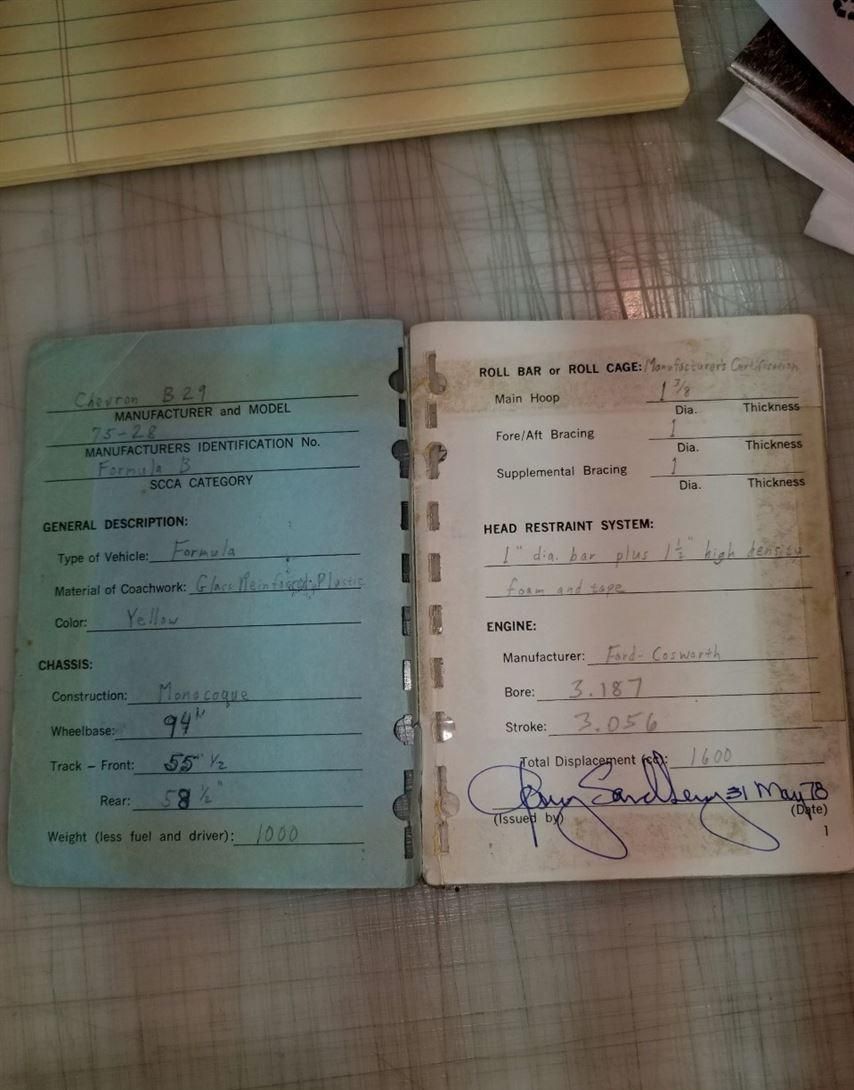 Chevron B29
MANUFACTURER and MODEL
75-28
MANUFACTURERS IDENTIFICATION No.
Formula B
SCCA CATEGORY
GENERAL DESCRIPTION:
Type of Vehicle: Formula
Material of Coachwork: Glass Reinforced Plastic
Color: Yellow
CHASSIS:
Construction: Monocoque
Wheelbase: 94"
Track – Front: 55" 1/2
Rear: 58 1/2"
Weight (less fuel and driver): 1000
ROLL BAR or ROLL CAGE: Manufacturer's Certification
Main Hoop 1 3/8
Dia. Thickness
Fore/Aft Bracing 1
Dia. Thickness
Supplemental Bracing 1
Dia. Thickness
HEAD RESTRAINT SYSTEM:
1" dia. bar plus 1 1/2" high density
foam and tape
ENGINE:
Manufacturer: Ford-Cosworth
Bore: 3.187
Stroke: 3.056
Total Displacement (cc): 1600
31 May 78
(Issued by) (Date)
1